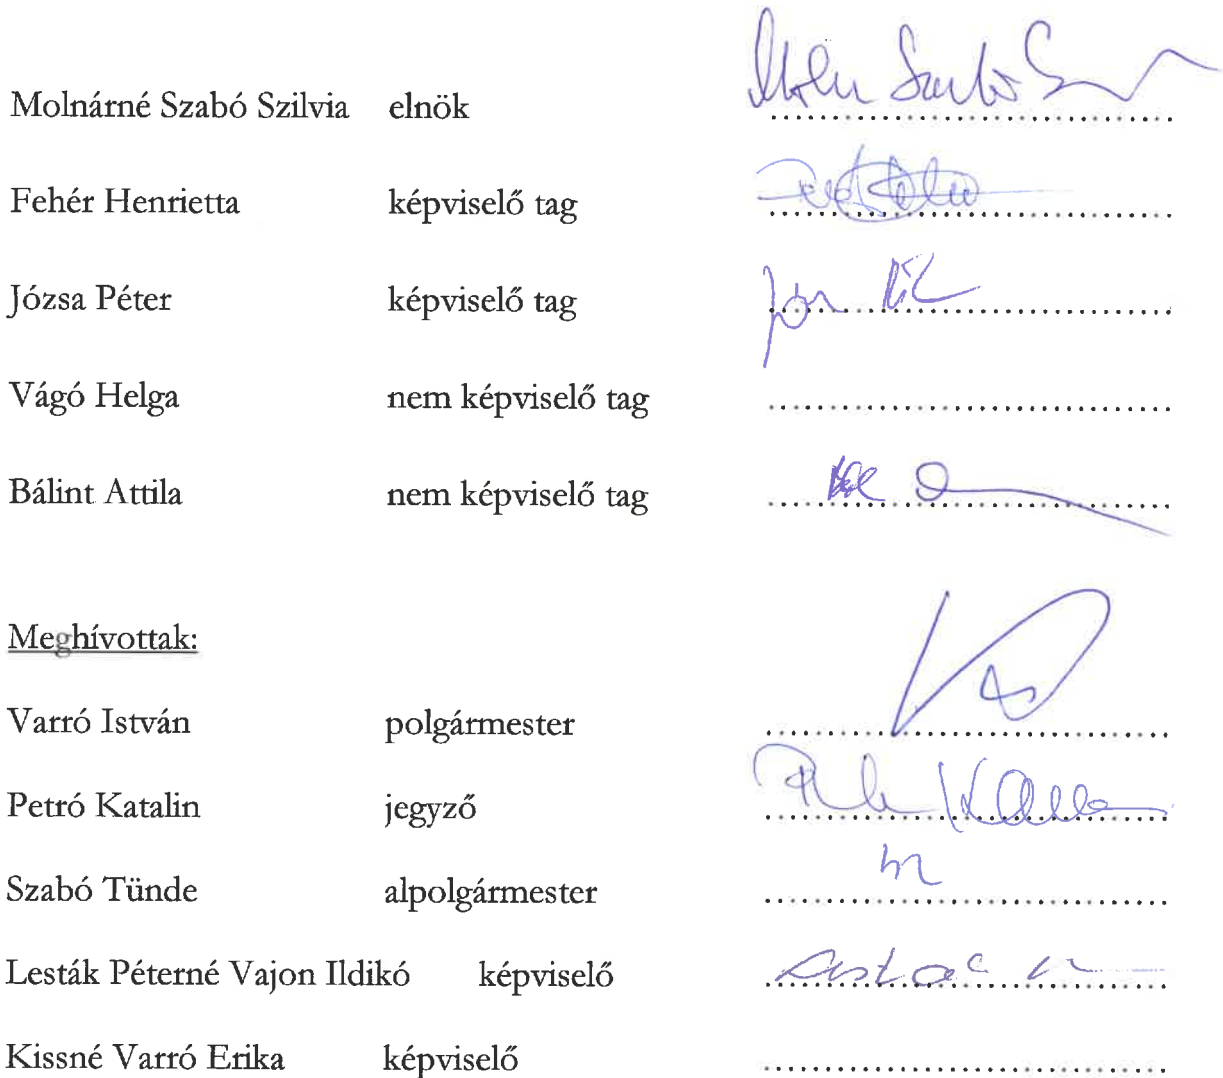 Molnárné Szabó Szilvia elnök ........................................
Fehér Henrietta képviselő tag ........................................
Józsa Péter képviselő tag ........................................
Vágó Helga nem képviselő tag ........................................
Bálint Attila nem képviselő tag ........................................
Meghívottak:
Varró István polgármester ........................................
Petró Katalin jegyző ........................................
Szabó Tünde alpolgármester ........................................
Lesták Péterné Vajon Ildikó képviselő ........................................
Kissné Varró Erika képviselő ........................................